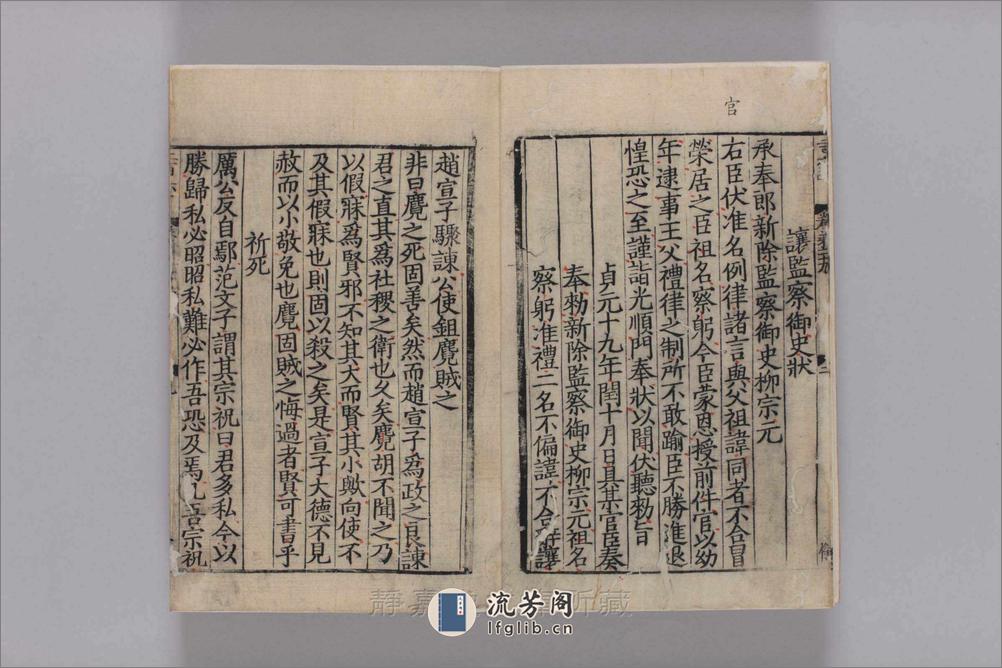 官
讓監察御史狀
承奉郎新除監察御史柳宗元
右臣伏准名例律諸言與父祖諱同者不合冒
榮居之臣祖名察躬今臣蒙恩授前件官以幼
年逮事王父禮律之制所不敢踰臣不勝進退
惶恐之至謹詣光順門奉狀以聞伏聽勑旨
貞元十九年閏十月日具某官臣奏
奉勑新除監察御史柳宗元祖名
察躬准禮二名不偏諱不合辭讓
趙宣子驟諫公使鉏麑賊之
非曰麑之死固善矣然而趙宣子爲政之良諫
君之直其爲社稷之衛也久矣麑胡不聞之乃
以假寐爲賢邪不知其大而賢其小歟向使不
及其假寐也則固以殺之矣是宣子大德不見
赦而以小敬免也麑固賊之悔過者賢可書乎
祈死
厲公反自鄢范文子謂其宗祝曰君多私今以
勝歸私必昭昭私難必作吾恐及焉凡吾宗祝
靜嘉 所藏
流芳阁
lfglib.cn